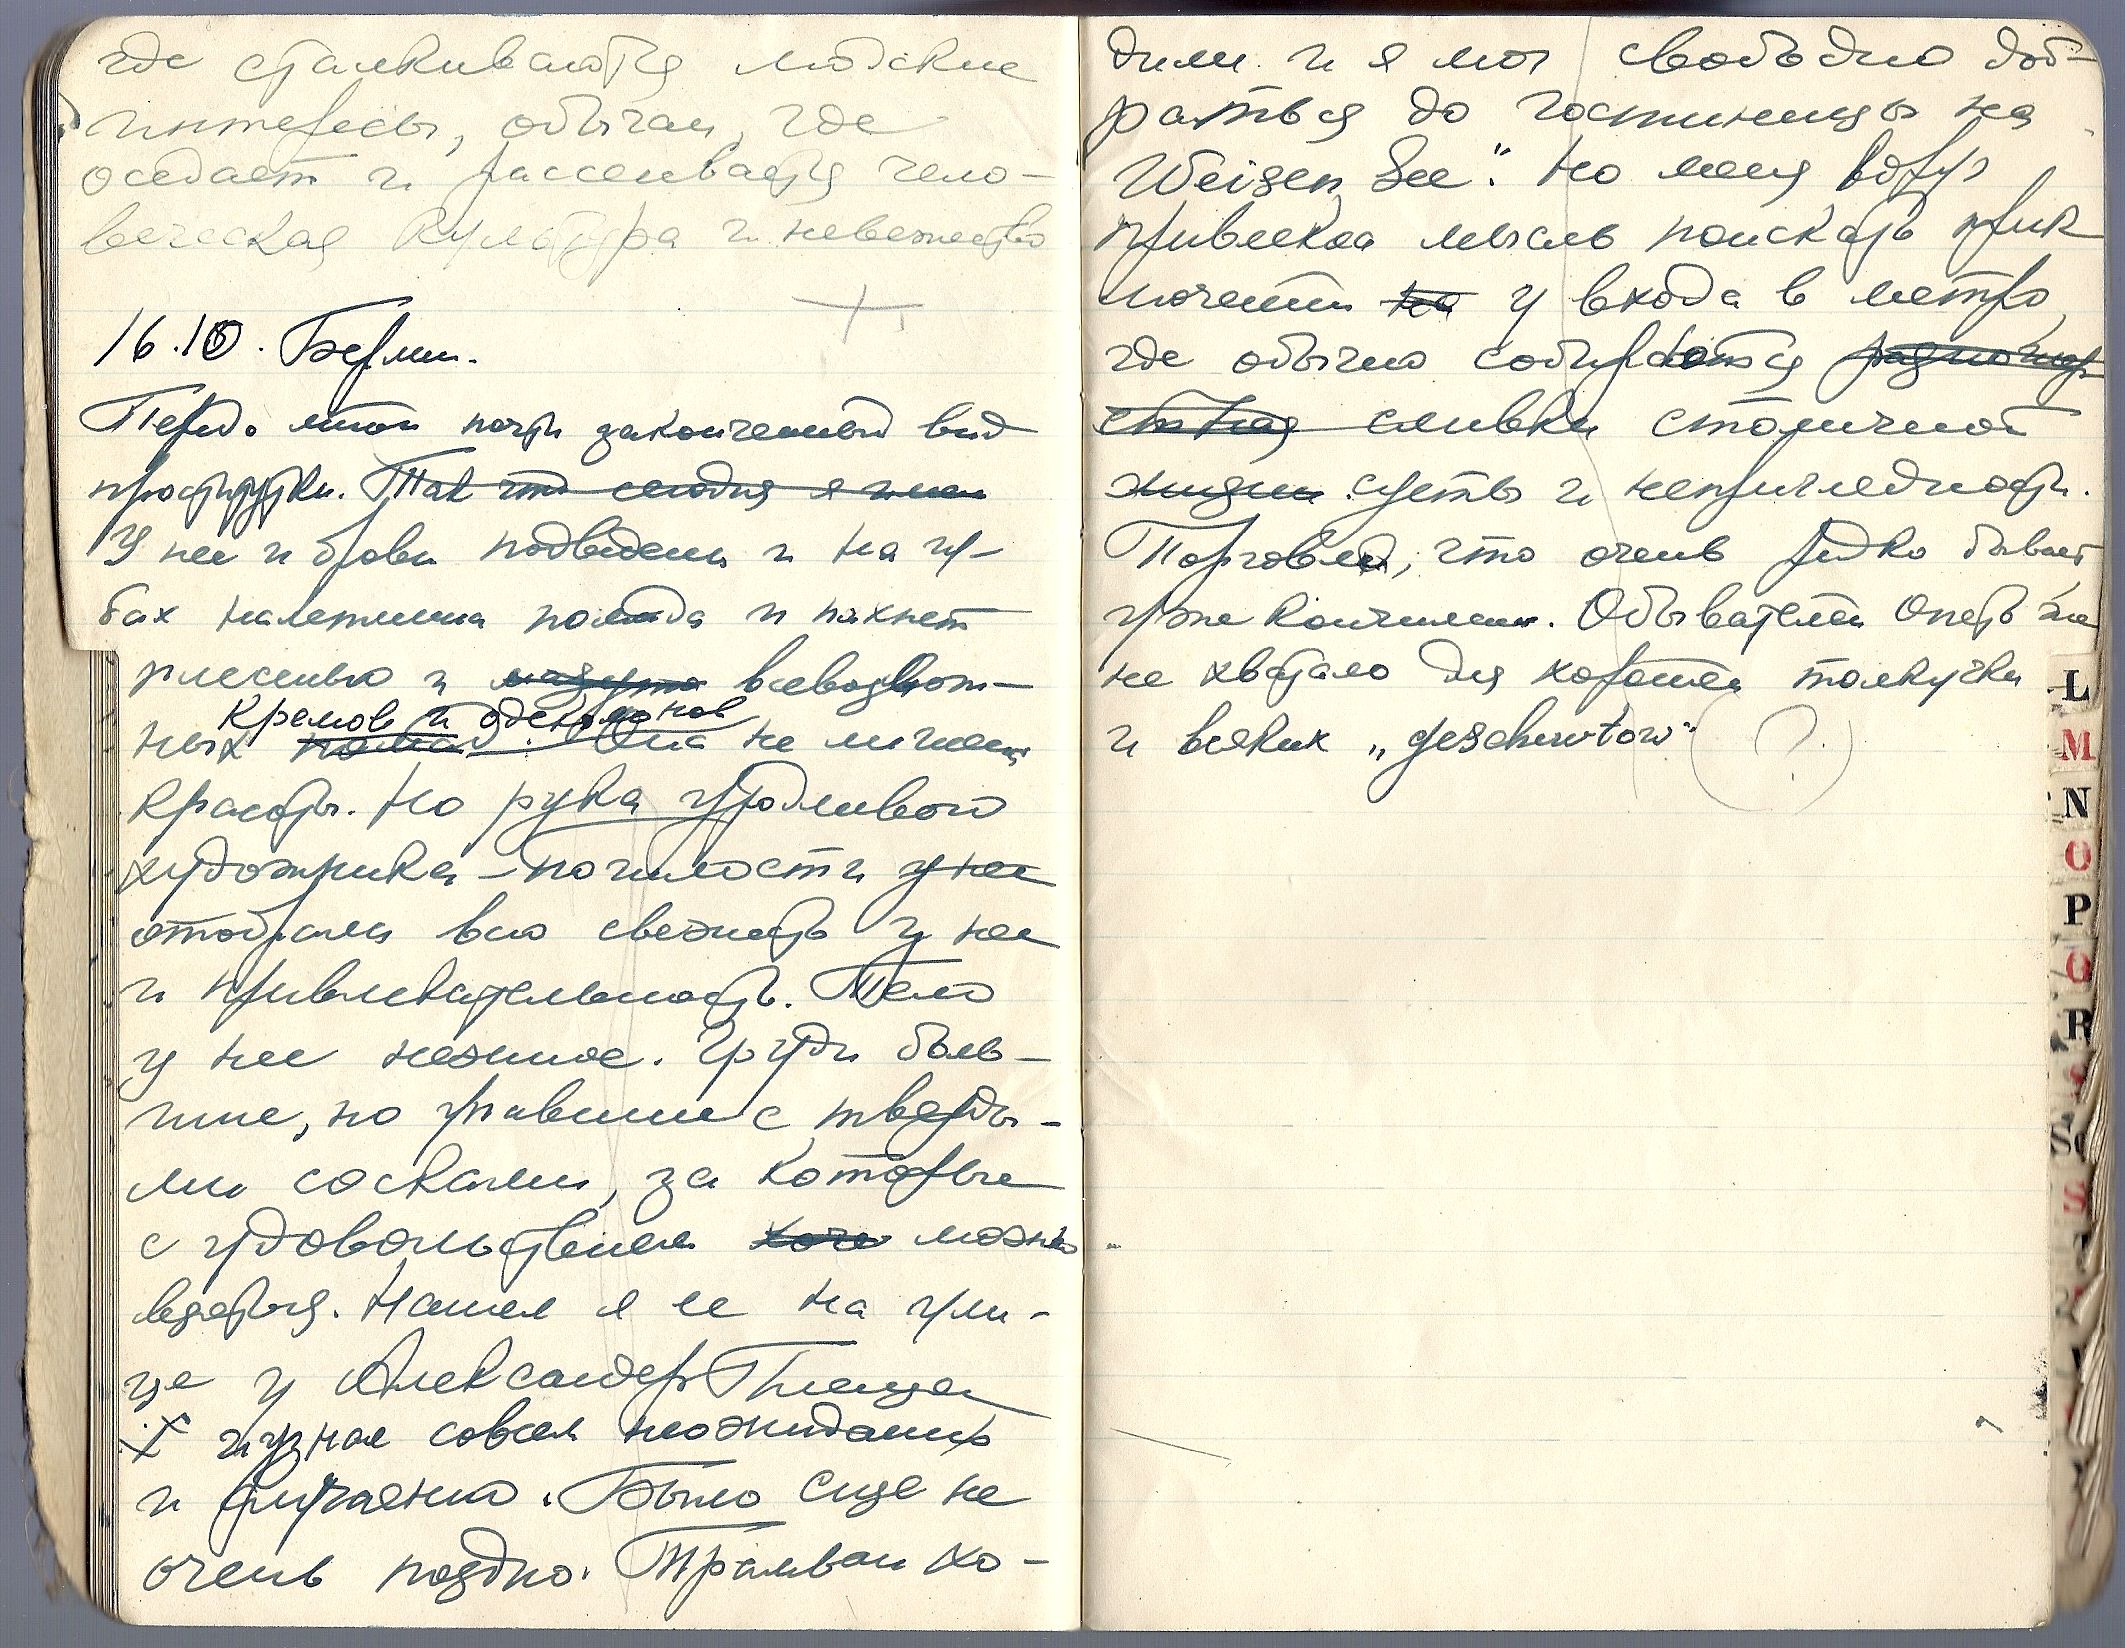 где сталкиваются людские
интересы, обычаи, где
оседает и рассеивается чело-
веческая культура и невежество
16.10. Берлин.
Передо мной почти законченный вид
проститутки. Так что сегодня я
У нее и брови подведены и на гу-
бах налеплена помада и пахнет
плесенью и всевозмож-
кремов и одеколонов
ных помад. Она не лишена
красоты. Но рука уродливой
художника - пошлости у нее
отобрали всю свежесть у нее
и привлекательность. Тело
у нее нежное. Груди боль-
шие, но упавшие с тверды-
ми сосками, за которые
с удовольствием можно
взяться. Нашел я ее на ули-
це у Александер Плаца
и узнал совсем неожиданно
и случайно. Было еще не
очень поздно. Трамваи хо-
дили и я мог свободно доб-
раться до гостиницы на
Weisen See". Но меня вдруг
привлекла мысль поискать прик
лючений на у входа в метро,
где обычно собираются
сливки столичной
жизни суеты и неприглядности.
Торговля, что очень редко бывает
уже кончилась. Обывателей опять же
не хватало для хорошей толкучки
и всяких „geschewtow" ?
L
M
N
O
P
Q
R
S